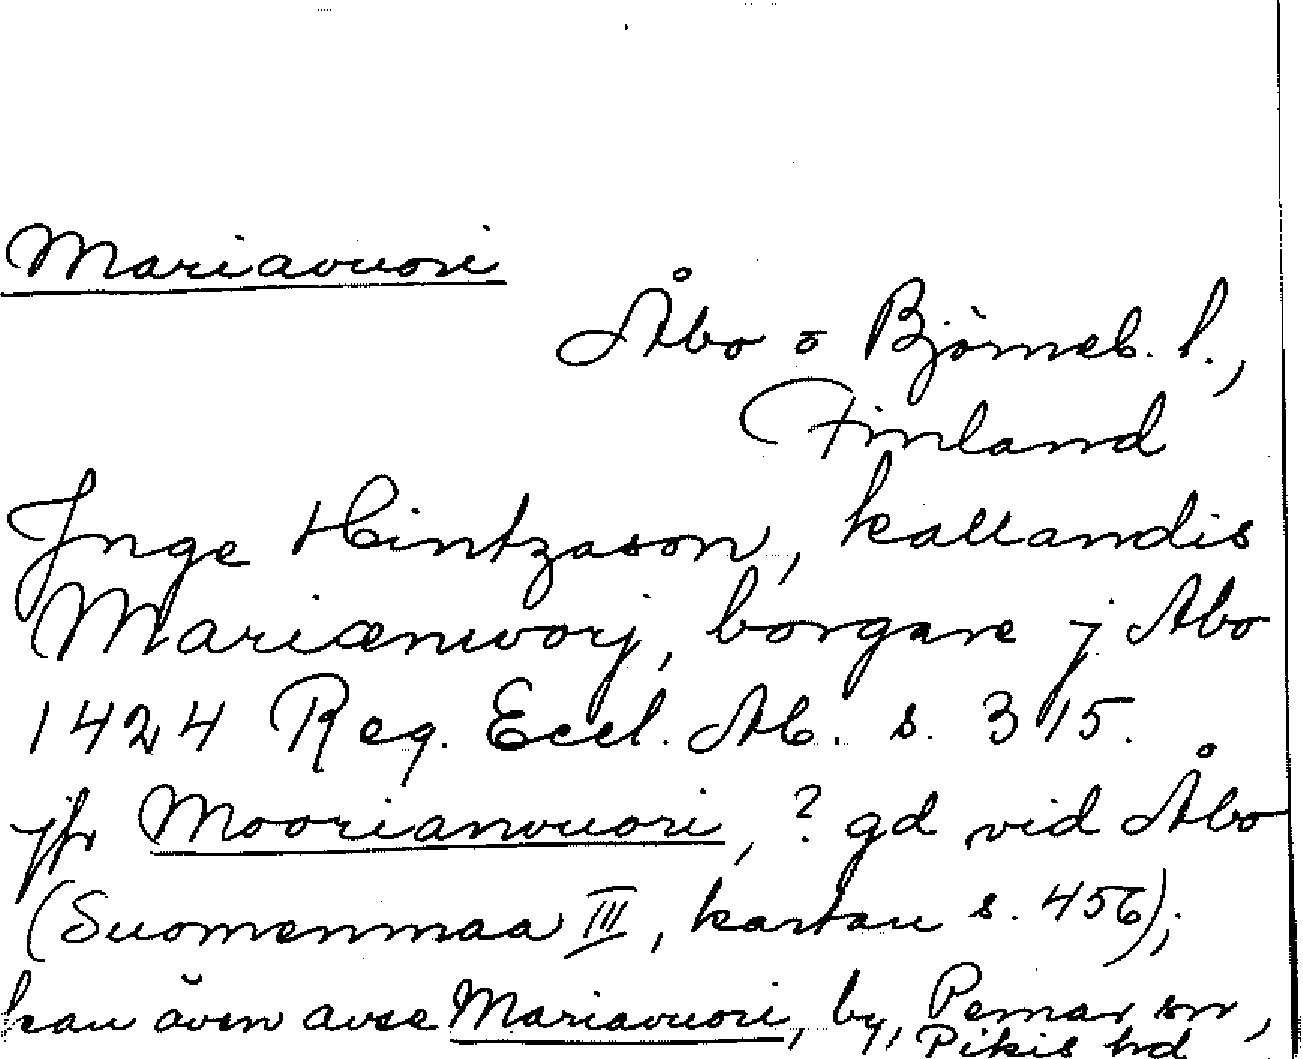 Mariavuori
Åbo o Björneb. l.,
Finland
Jnge Hintzason, kallandis
Mariænworj, borgare j Abo
1424 Reg. Eccl. Ab. s. 315.
jfr Moorianvuori, ? gd vid Åbo
(Suomenmaa III, kartan s. 456);
kan även avse Mariavuori, by, Pemar sn,
Pikis hd